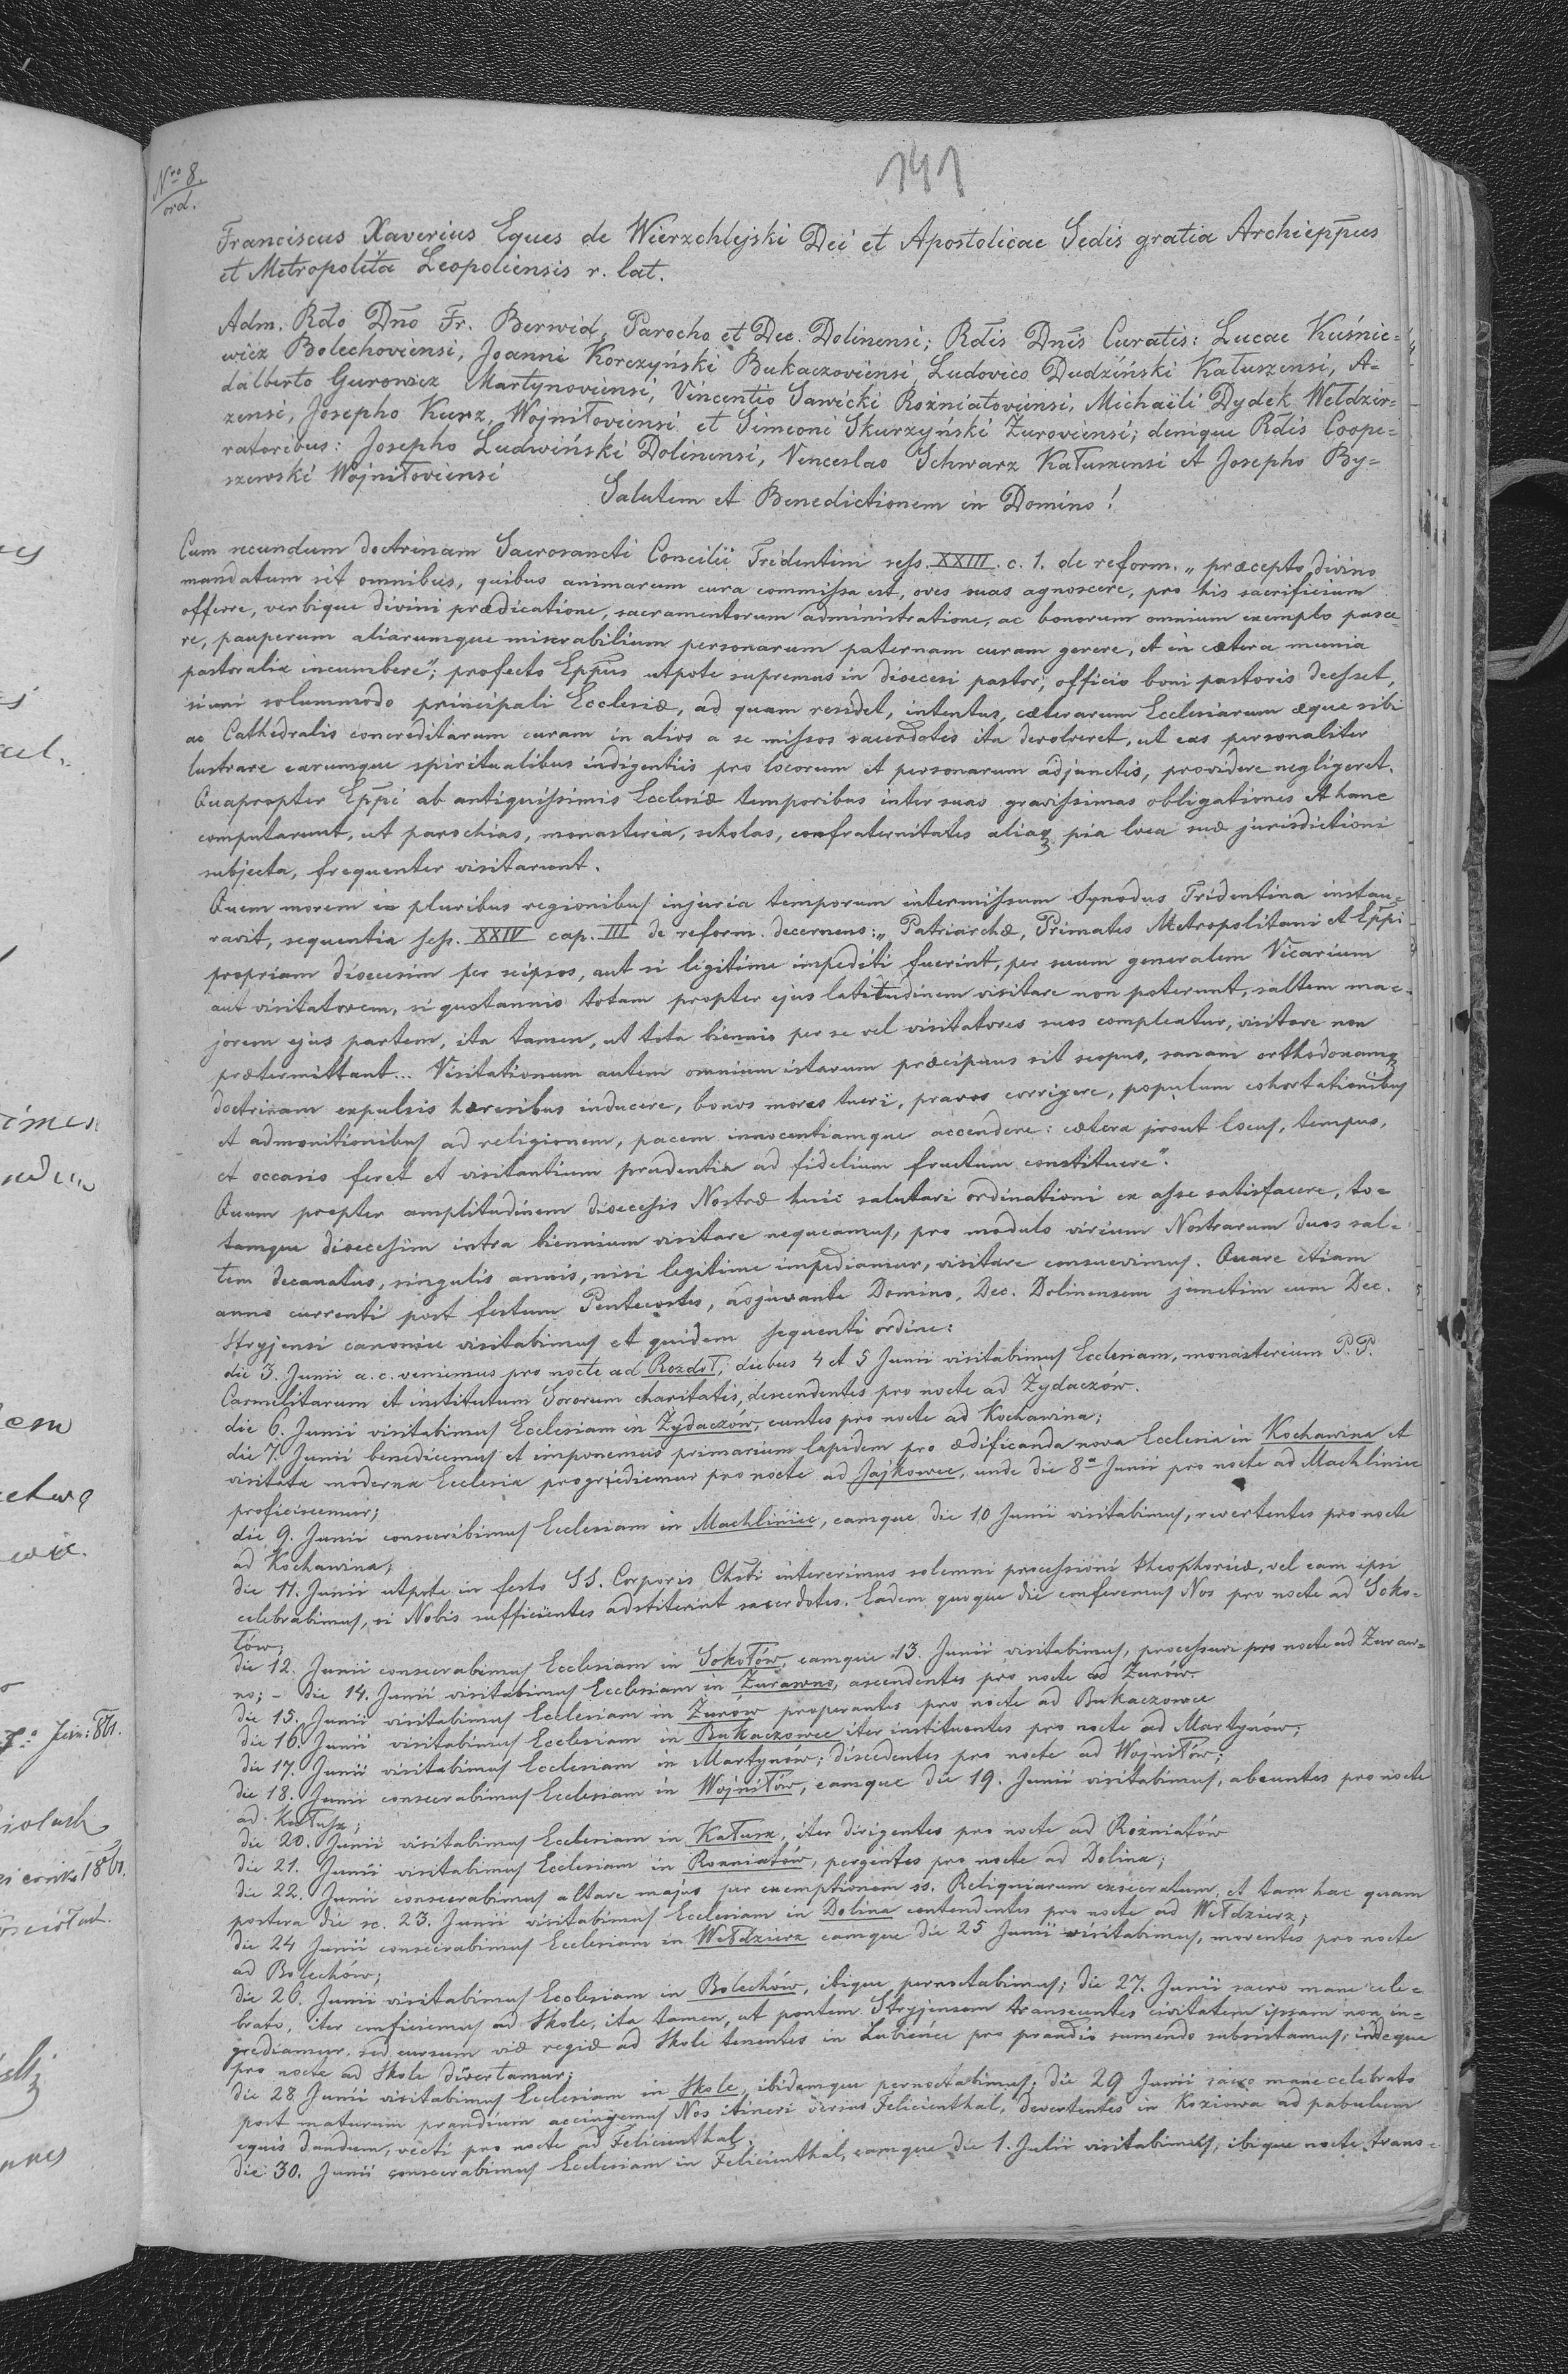 141
Nro 8.
ord.
Franciscus Xaverius Eques de Wierzchlejski Dei et Apostolicae Sedis gratia Archieppus
et Metropolita Leopoliensis r. lat.
Adm. Rdo Dno Fr. Berwid, Parocho et Dec. Dolinensi; Rdis Dnis Curatis: Lucae Kuśnie=
wicz Bolechoviensi, Joanni Korczyński Bukaczoviensi, Ludovico Dudziński Kałuszensi, A=
dalberto Gurowicz Martynoviensi, Vincentio Sawicki Rożniatoviensi, Michaëli Dydek Wełdzir=
zensi, Josepho Kurz, Wojniłoviensi et Simeoni Skurzyński Żuroviensi; denique Rdis Coope=
ratoribus: Josepho Ludwiński Dolinensi, Venceslao Schwarz Kałuszensi et Josepho By=
szewski Wojniłoviensi
Salutem et Benedictionem in Domino!
Cum secundum doctrinam Sacrosancti Concilii Tridentini sess. XXIII. c. 1. de reform. „præcepto divino
mandatum sit omnibus, quibus animarum cura commissa est, oves suas agnoscere, pro his sacrificium
offerre, verbique divini prædicatione, sacramentorum administratione, ac bonorum omnium exemplo pasce=
re, pauperum aliarumque miserabilium personarum paternam curam gerere, et in cætera munia
pastoralia incumbere"; profecto Eppus utpote supremus in dioecesi pastor, officio boni pastoris deesset,
si uni solummodo principali Ecclesiæ, ad quam residet, intentus, cæterarum Ecclesiarum æque sibi
ac Cathedralis concreditarum curam in alios a se missos sacerdotes ita devolveret, ut eas personaliter
lustrare earumque spiritualibus indigentiis pro locorum et personarum adjunctis, providere negligeret.
Quapropter Eppi ab antiquissimis Ecclesiæ temporibus inter suas gravissimas obligationes et hanc
computarunt, ut parochias, monasteria, scholas, confraternitates aliaq pia loca suæ jurisdictioni
subjecta, frequenter visitarent.
Quem morem in pluribus regionibus injuria temporum intermissum Synodus Tridentina instau=
ravit, sequentia sess. XXIV cap. III de reform. decernens: „Patriarchæ, Primates Metropolitani et Eppi
propriam dioecesim per seipsos, aut si legitime impediti fuerint, per suum generalem Vicarium
aut visitatorem, si quotannis totam propter ejus latitudinem visitare non poterunt, saltem ma=
jorem ejus partem, ita tamen, ut tota biennio per se vel visitatores suos compleatur, visitare non
prætermittant... Visitationum autem omnium istarum præcipuus sit scopus, sanam orthodoxamq
doctrinam expulsis hæresibus inducere, bonos mores tueri, pravos corrigere, populum cohortationibus
et admonitionibus ad religionem, pacem innocentiamque accendere: cætera prout locus, tempus,
et occasio feret et visitantium prudentia ad fidelium fructum constituere".
Quum propter amplitudinem dioecesis Nostræ huic salutari ordinationi ex asse satisfacere, to=
tamque dioecesim intra biennium visitare nequeamus, pro modulo virium Nostrarum duos sal=
tem decanatus, singulis annis, nisi legitime impediamur, visitare consuevimus. Quare etiam
anno currenti post festum Pentecostes, adjuvante Domino, Dec. Dolinensem junctim cum Dec.
Stryjensi canonice visitabimus et quidem sequenti ordine:
die 3. Junii a. c. veniemus pro nocte ad Rozdół; diebus 4 et 5 Junii visitabimus Ecclesiam, monasterium P.P.
Carmelitarum et institutum Sororum charitatis, descendentes pro nocte ad Żydaczów.
die 6. Junii visitabimus Ecclesiam in Żydaczów, euntes pro nocte ad Kochawina;
die 7. Junii benedicemus et imponemus primarium lapidem pro ædificanda nova Ecclesia in Kochawina et
visitata moderna Ecclesia progrediemur pro nocte ad Jajkowce, unde die 8a Junii pro nocte ad Machliniec
proficiscemur;
die 9. Junii consecrabimus Ecclesiam in Machliniec, eamque die 10 Junii visitabimus, revertentes pro nocte
ad Kochawina;
die 11. Junii utpote in festo SS. Corporis Chsti intererimus solemni processioni theophoricæ, vel eam ipsi
celebrabimus, si Nobis sufficientes adstiterint sacerdotes. Eadem quoque die conferemus Nos pro nocte ad Soko=
łów;
die 12. Junii consecrabimus Ecclesiam in Sokołów, eamque 13. Junii visitabimus, processuri pro nocte ad Żuraw=
no; - die 14. Junii visitabimus Ecclesiam in Żurawno, ascendentes pro nocte ad Żurów.
die 15. Junii visitabimus Ecclesiam in Żurów properantes pro nocte ad Bukaczowce
die 16. Junii visitabimus Ecclesiam in Bukaczowce iter instituentes pro nocte ad Martynów;
die 17. Junii visitabimus Ecclesiam in Martynów; discedentes pro nocte ad Wojniłów;
die 18. Junii consecrabimus Ecclesiam in Wojniłów, eamque die 19. Junii visitabimus, abeuntes pro nocte
ad Kałusz;
die 20. Junii visitabimus Ecclesiam in Kałusz, iter dirigentes pro nocte ad Rożniatów
die 21. Junii visitabimus Ecclesiam in Rozniatów, pergentes pro nocte ad Dolina;
die 22. Junii consecrabimus altare majus per exemptionem ss. Reliquiarum exsecratum, et tam hac quam
postera die sc. 23. Junii visitabimus Ecclesiam in Dolina contendentes pro nocte ad Wełdzirz;
die 24 Junii consecrabimus Ecclesiam in Wełdzirz eamque die 25 Junii visitabimus, moventes pro nocte
ad Bolechów;
die 26. Junii visitabimus Ecclesiam in Bolechów, ibique pernoctabimus; die 27. Junii sacro mane cele=
brato, iter conficiemus ad Skole, ita tamen, ut pontem Stryjensem transeuntes civitatem ipsam non in=
grediamur, sed cursum viæ regiæ ad Skole tenentes in Lubieńce pro prandio sumendo subsistamus, indeque
pro nocte ad Skole divertamur;
die 28 Junii visitabimus Ecclesiam in Skole, ibidemque pernoctabimus; die 29 Junii sacro mane celebrato
post maturum prandium accingemus Nos itineri versus Felicienthal, devertentes in Koziowa ad pabulum
equis dandum, vecti pro nocte ad Felicienthal.
die 30. Junii consecrabimus Ecclesiam in Felicienthal, eamque die 1. Julii visitabimus, ibique nocte trans=